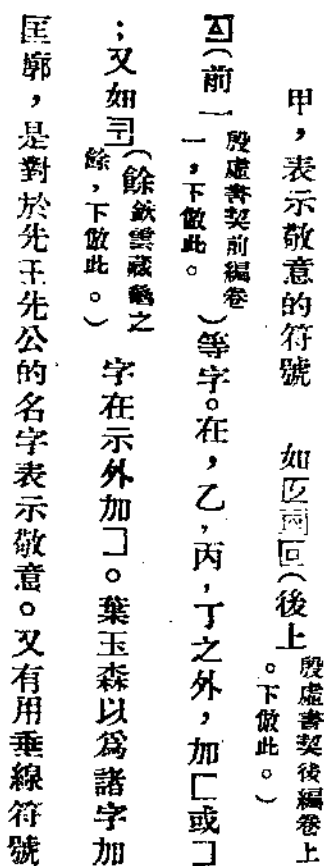 甲，表示敬意的符號　如（後上殷虛書契後編卷上。下倣此。）
（前一殷虛書契前編卷一，下倣此。）等字。在，乙，丙，丁之外，加匚或コ
；又如（餘鐵雲藏龜之餘，下倣此。）字在示外加コ。葉玉森以爲諸字加
匡廓，是對於先王先公的名字表示敬意。又有用垂線符號